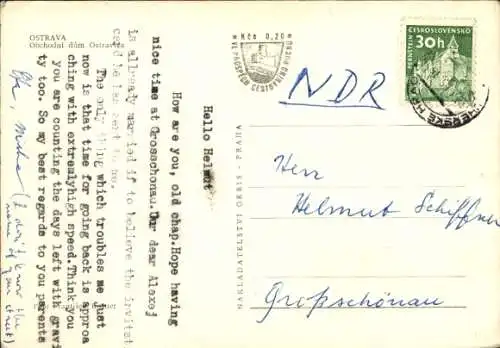 OSTRAVA
Obchodní dům Ostravica
Hello Helmut
How are you, old chap.Hope having
nice time at Grosschonau.Our dear Alexej
is allready married if to believe the invitat
card he has sent to me.
The only thing which troubles me just
now is that time for going back is approa
ching with extremlyhigh speed.Think you
you are counting the days left with gravi
ty too. So my best regards to you parents
(I don't know the
name of your
street)
Kčs 0,20
VE PROSPĚCH CESTOVNÍHO RUCHU
NAKLADATELSTVÍ ORBIS - PRAHA
ČESKOSLOVENSKO
30h
PERNŠTEJN
NDR
Herr
Helmut Schiffner
Großschönau